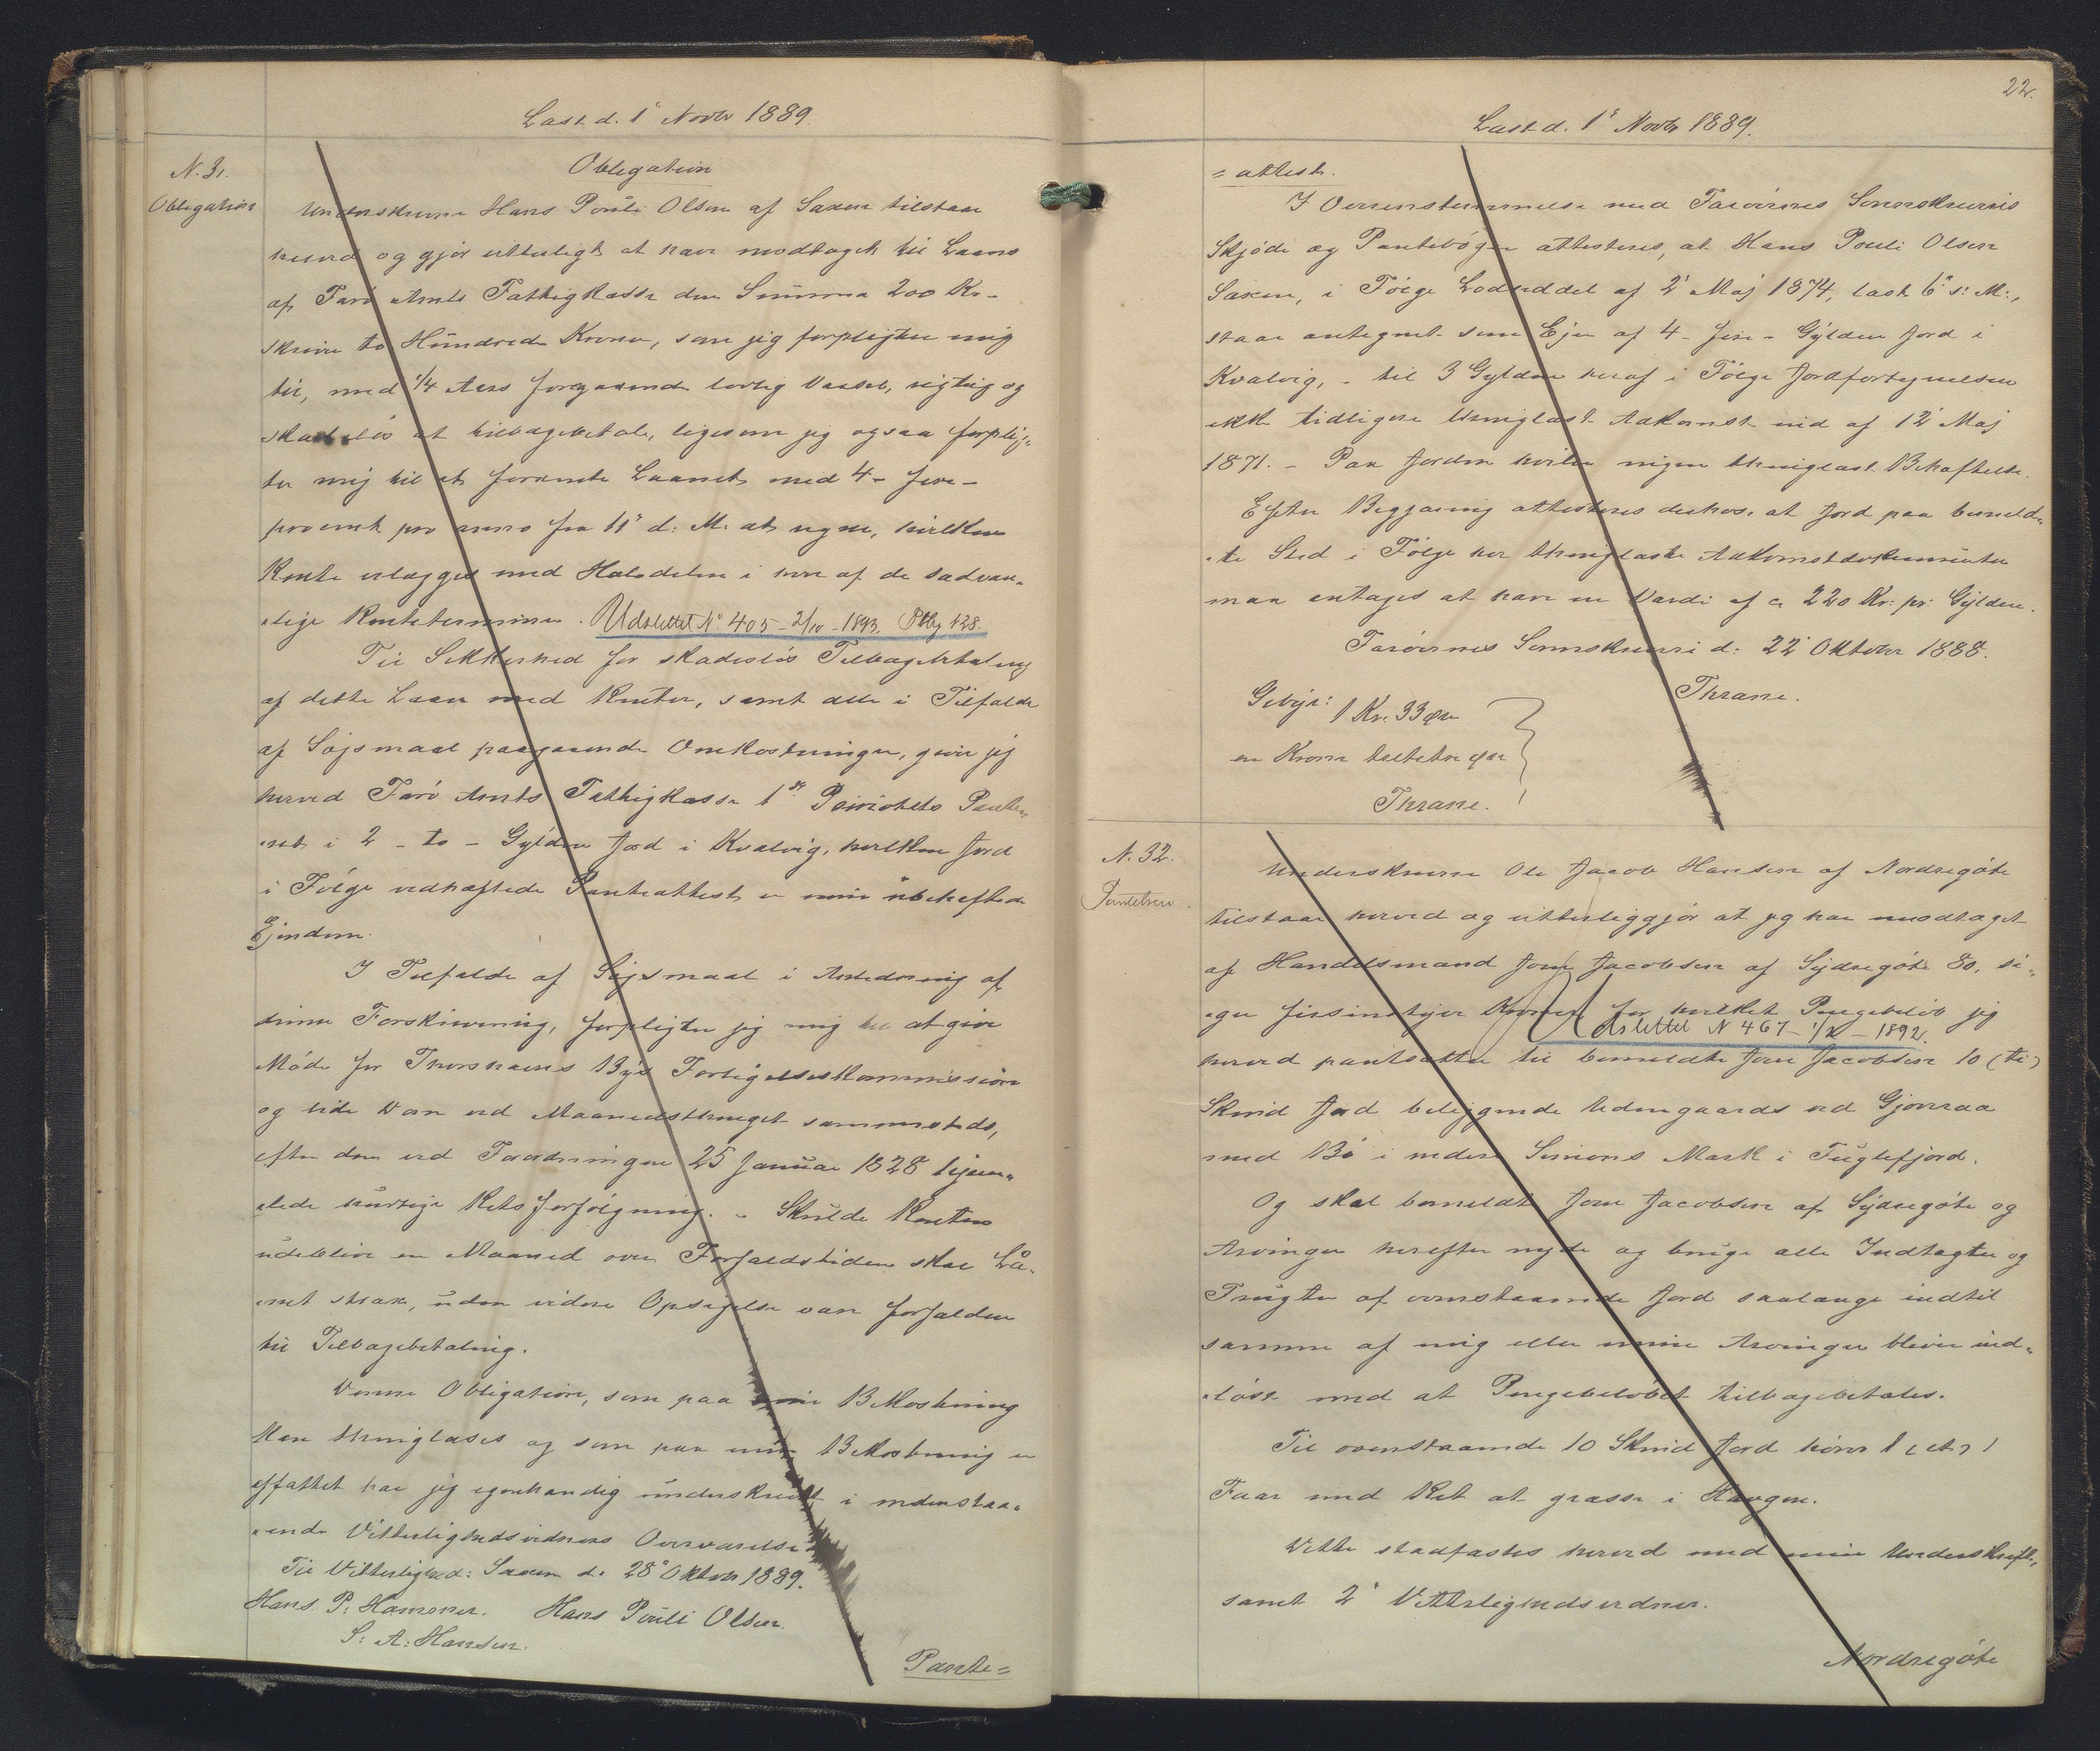 Læst d. 1' Novbr 1889.
N. 31.
Obligation
Obligation
Underskrevne Hans Pouli Olsen af Saxen tilstaar
herved og gjør vitterligt at have modtaget til Laans
af Farö Amts Fattigkasse den Summa 200 Kr -
skriver to Hundrede Kroner, som jeg forpligter mig
til, med 1/4 Aars foregaaende lovlig Varsel, rigtig og
skadeslös at tilbagebetale, ligesom jeg ogsaa forplig-
ter mig til at forrente Laanet med 4 - fire -
procent pro anno fra 11' d: M. at regne, hvilken
Rente erlægges med Halvdelen i hver af de sædvan-
-lige Renteterminer. Udslettet No 405 - 2/10 - 1893. Ptbg 128.
Til Sikkerhed for skadeslös Tilbagebetaling
af dette Laan med Renter, samt alle i Tilfælde
af Søgsmaal paagaaende Omkostninger, giver jeg
herved Farö Amts Fattigkasse 1ste Prioritets Pante-
-ret i 2 - to - Gylden Jord i Kvalvig, hvilken Jord
i Følge vedhæftede Panteattest er min ubehæftede
Ejendom.
I Tilfælde af Søgsmaal i Anledning af
denne Forskrivning, forpligter jeg mig til at give
Møde for Thorshavns Byes Forligelseskommission
og lide Dom ved Maanedsthinget sammesteds,
efter den ved Forordningen 25 Januar 1828 hjem-
-lede hurtige Retsforfølgning. - Skulde Renten
udeblive en Maaned over Forfaldstiden skal Laa-
-net strax, uden videre Opsigelse være forfalden
til Tilbagebetaling.
Denne Obligation, som paa min Bekostning
kan thinglæses og som paa min Bekostning er
affattet har jeg egenhændig underskrevet i nedenstaa-
-ende Vitterlighedsvidners Overværelse.
Til Vitterlighed: Saxen d. 28' Oktobr 1889.
Hans P: Hansen. Hans Pouli Olsen.
S: A: Hansen.
Pante=
22.
Læst d. 1' Novbr 1889.
= attest.
I Overensstemmelse med Færøernes Sorenskriveris
Skjöde og Pantebøger attesteres, at Hans Pouli Olsen
Saxen, i Følge Lodseddel af 2' Maj 1874, læst 6' s: M:,
staar antegnet som Ejer af 4 - fire - Gylden Jord i
Kvalvig, - til 3 Gylden heraf i Følge Jordfortegnelsen
ikke tidligere thinglæst Adkomst end af 12' Maj
1871. - Paa Jorden hviler ingen thinglæst Behæftelse.
Efter Begjæring attesteres derhos, at Jord paa bemeld-
-te Sted i Følge her thinglæste Adkomstdokumenter
maa antages at have en Værdi af ca 220 Kr: pr: Gylden.
Færøernes Sorenskriveri d: 22' Oktober 1888.
Thrane.
Gebyr: 1 Kr. 33 Øre
en Krone trettetre Øre
Thrane.
N. 32.
Pantebrev.
Underskrevne Ole Jacob Hansen af Nordregöte
tilstaar herved og vitterliggjör at jeg har modtaget
af Handelsmand Joen Jacobsen af Sydregöte 80, si-
-ger firsindstyve Kroner for hvilket Pengebeløb jeg
Udslettet N 467 - 1/2 - 1892.
herved pantsætter til bemeldte Joen Jacobsen 10 (ti)
Skind Jord beliggende Udengaards ved Gjoveraa
med Bö i nedre Simons Mark i Fuglefjord.
Og skal bemeldte Joen Jacobsen af Sydregöte og
Arvinger herefter nyde og bruge alle Indtægter og
Frugter af ovenstaaende Jord saalænge indtil
samme af mig eller mine Arvinger bliver ind-
-löst med at Pengebelöbet tilbagebetales.
Til ovenstaaende 10 Skind Jord hører 1 (et)
Faar med Ret at græsse i Haugen.
Dette stadfæstes herved med min Underskrift,
samt 2' Vitterlighedsvidner.
Nordregöte